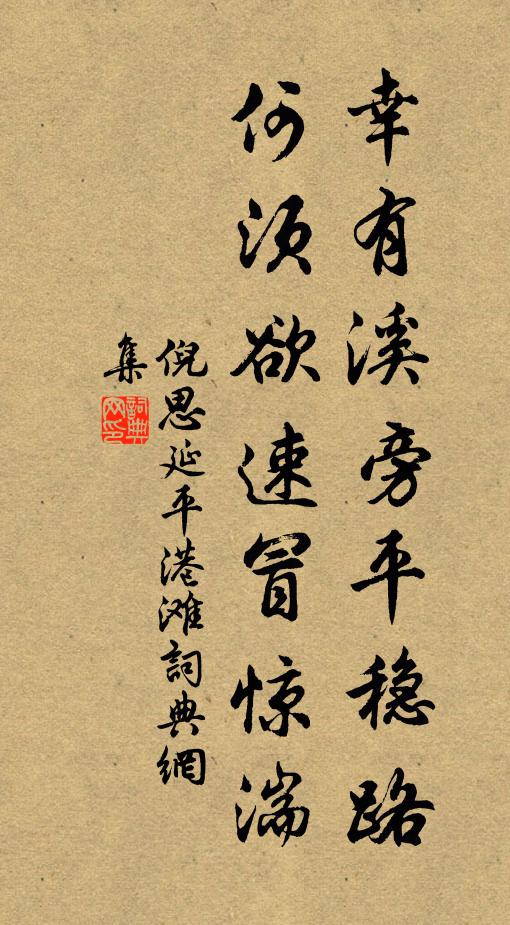 幸有溪旁平稳路
何须欲速冒惊湍
倪思延平港滩詞典網
集
詞典網印